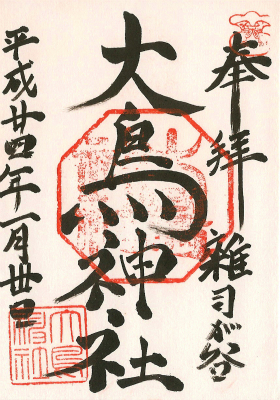 奉拝
雑司が谷
大鳥神社
平成廿四年一月廿日
大鳥神社